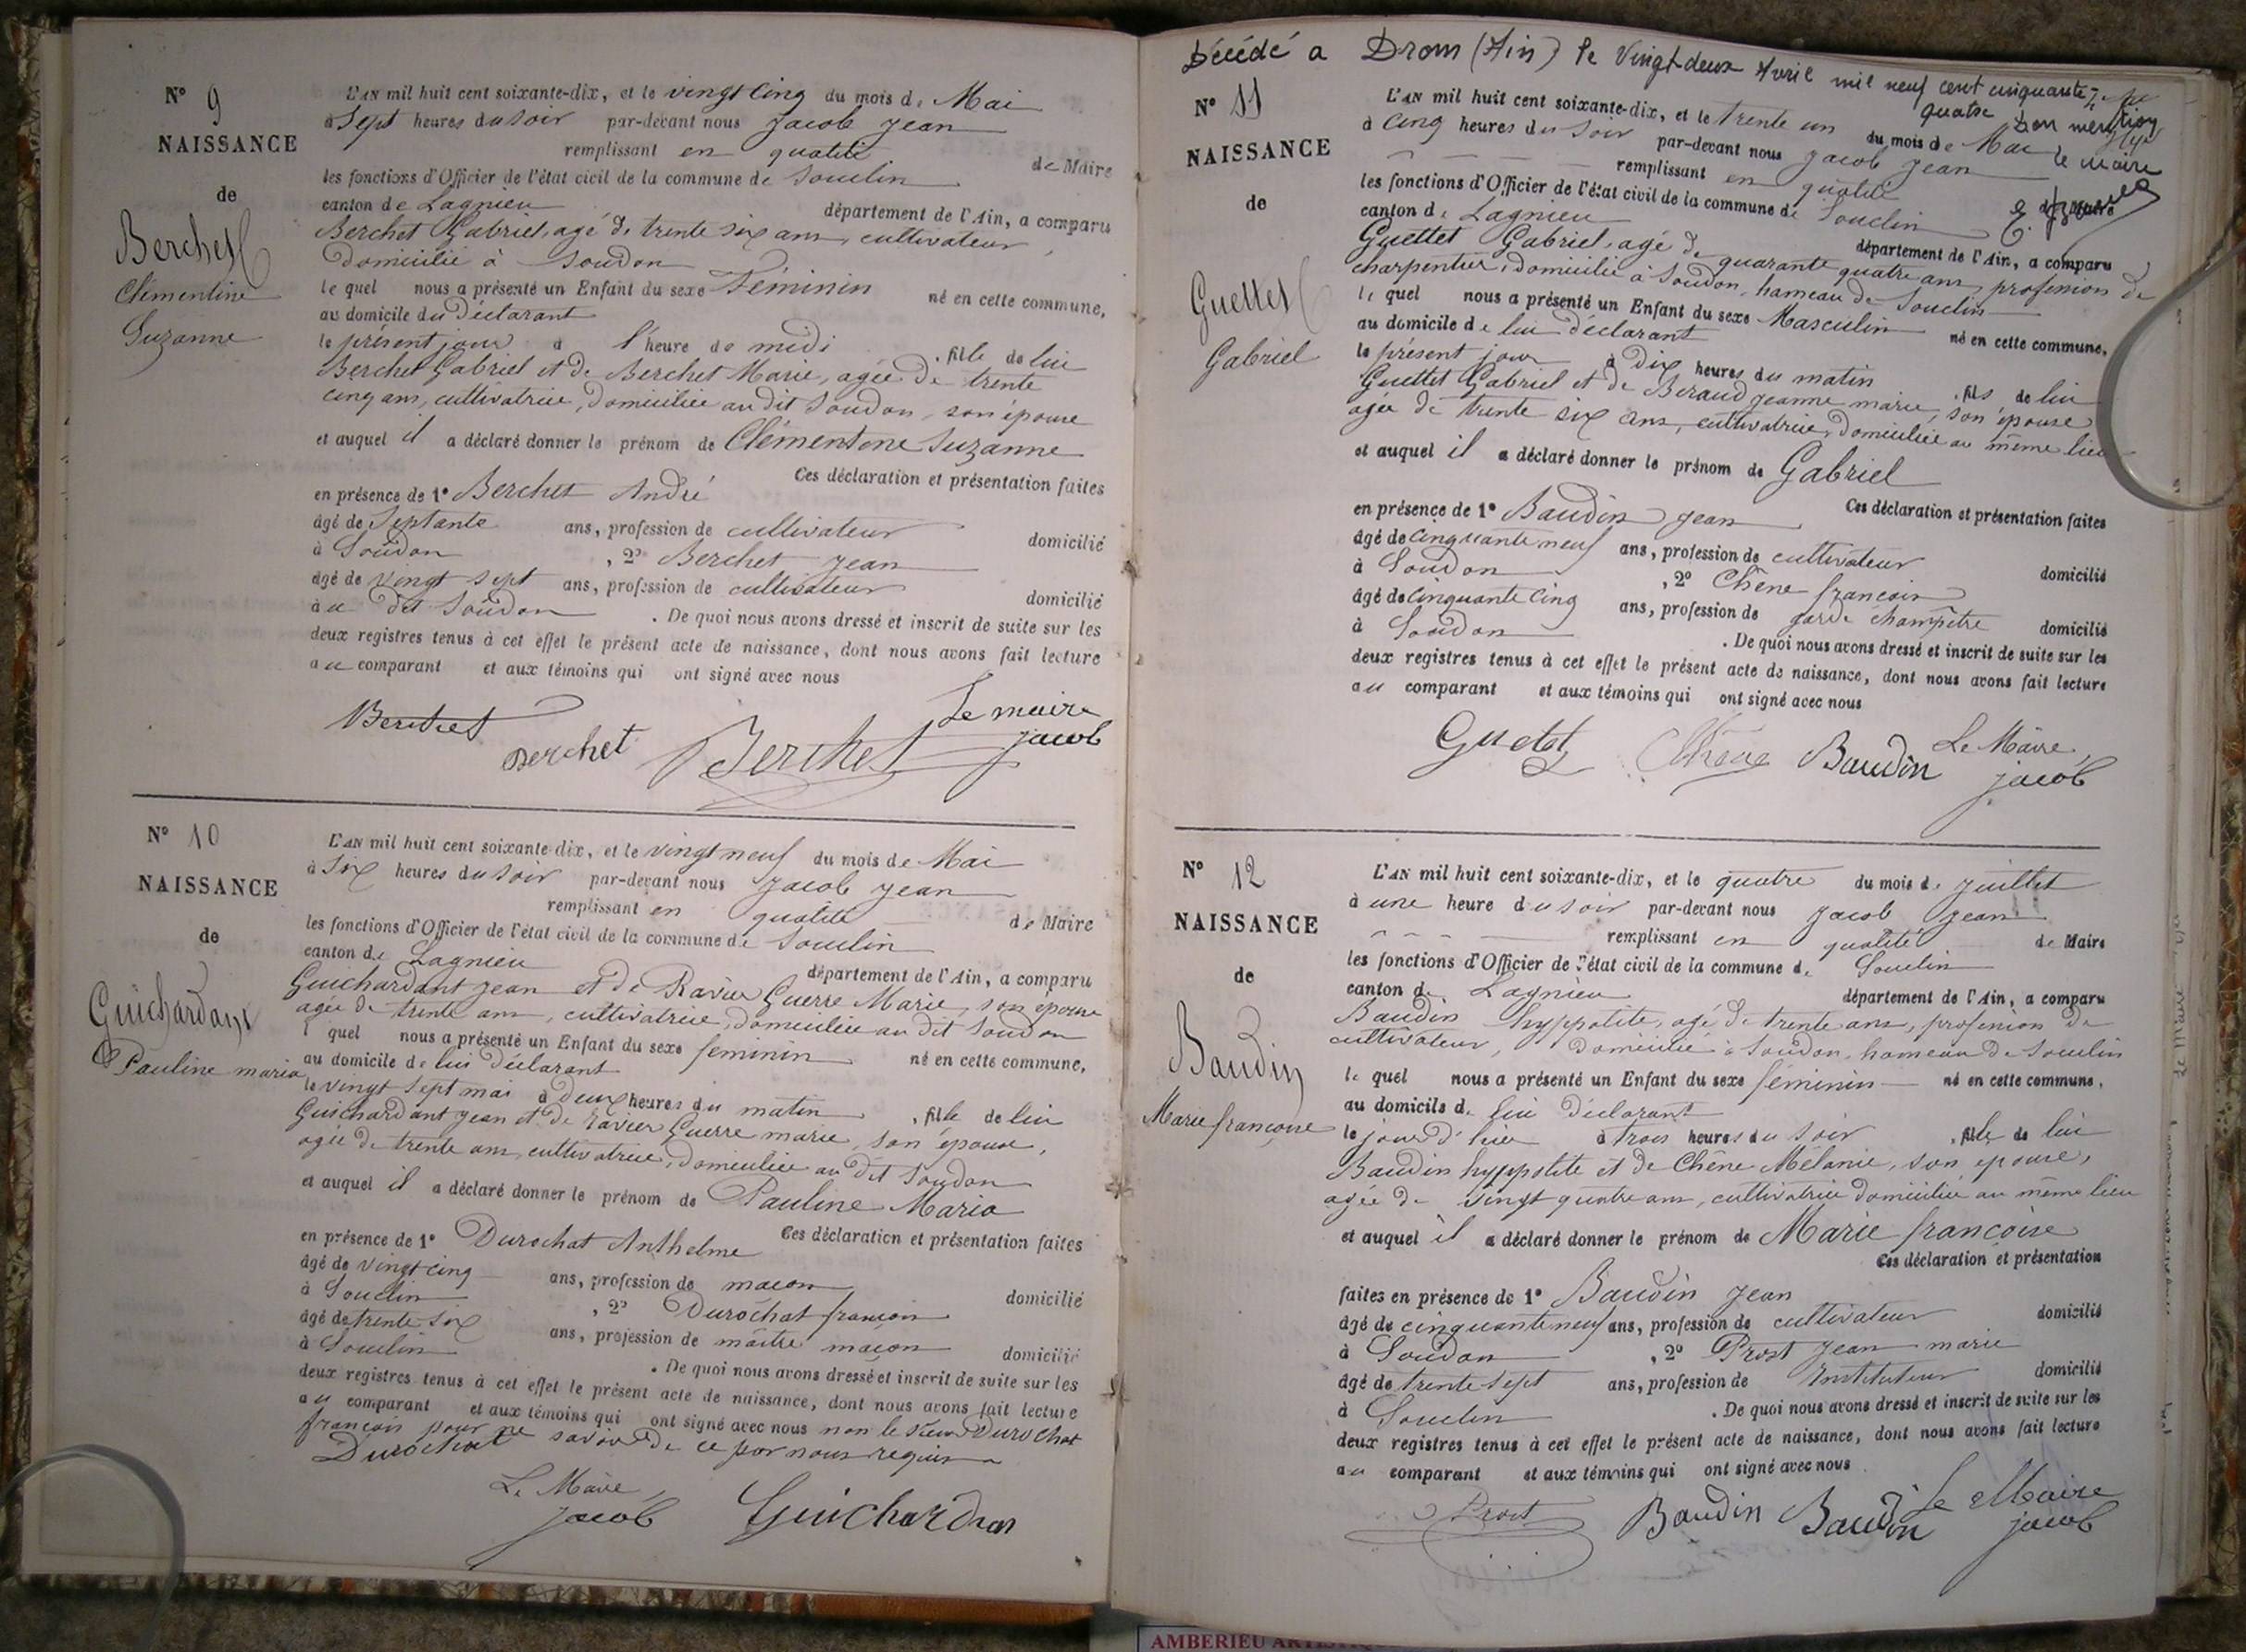 N° 9
NAISSANCE
de
Berchet
Clémentine
Suzanne
L'AN mil huit cent soixante-dix, et le vingt cinq du mois de Mai
à Sept heures du Soir par-devant nous Jacob Jean
remplissant en qualité de Maire
les fonctions d'Officier de l'état civil de la commune de Souclin
canton de Lagnieu département de l'Ain, a comparu
Berchet Gabriel, agé de trente six ans, cultivateur,
Domicilié à Soudon
le quel nous a présenté un Enfant du sexe Féminin né en cette commune,
au domicile du Déclarant
le présent jour à l'heure de midi, fille de lui
Berchet Gabriel et de Berchet Marie, agée de trente
cinq ans, cultivatrice, Domiciliée au dit Soudon, son épouse
et auquel il a déclaré donner le prénom de Clémentone Suzanne
Ces déclaration et présentation faites
en présence de 1° Berchet André
âgé de Septante ans, profession de cultivateur domicilié
à Soudon, 2° Berchet Jean
âgé de vingt sept ans, profession de cultivateur domicilié
à au dit Soudon. De quoi nous avons dressé et inscrit de suite sur les
deux registres tenus à cet effet le présent acte de naissance, dont nous avons fait lecture
au comparant et aux témoins qui ont signé avec nous
Berchet Berchet Berchet Le maire
Jacob
N° 10
NAISSANCE
de
Guichardant
Pauline maria
L'AN mil huit cent soixante-dix, et le vingt neuf du mois de Mai
à Six heures du Soir par-devant nous Jacob Jean
remplissant en qualité de Maire
les fonctions d'Officier de l'état civil de la commune de Souclin
canton de Lagnieu département de l'Ain, a comparu
Guichardant Jean et de Ravier Guerre Marie, son épouse
agée de trente ans, cultivatrice, domiciliée au dit Soudon
l quel nous a présenté un Enfant du sexe féminin né en cette commune,
au domicile de lui Déclarant
le vingt sept mai à Deux heures du matin, fille de lui
Guichardant Jean et de Ravier Guerre marie, son épouse,
agée de trente ans, cultivatrice, Domiciliée au dit Soudon
et auquel il a déclaré donner le prénom de Pauline Maria
Ces déclaration et présentation faites
en présence de 1° Durochat Anthelme
âgé de vingt cinq ans, profession de maçon domicilié
à Souclin, 2° Durochat françois
âgé de trente six ans, profession de maître maçon domicilié
à Souclin. De quoi nous avons dressé et inscrit de suite sur les
deux registres tenus à cet effet le présent acte de naissance, dont nous avons fait lecture
au comparant et aux témoins qui ont signé avec nous non le sieur Durochat
françois pour ne savoir de ce par nous requis
Durochat
Le Maire,
Jacob Guichardan
Décédé a Drom (Ain) le Vingt-deux Avril mil neuf cent cinquante
quatre Don mention
le maire
N° 11
NAISSANCE
de
Guettet
Gabriel
L'AN mil huit cent soixante-dix, et le trente un du mois de Mai
à Cinq heures du Soir par-devant nous Jacob Jean
remplissant en qualité de Maire
les fonctions d'Officier de l'état civil de la commune de Souclin
canton de Lagnieu département de l'Ain, a comparu
Guettet Gabriel, agé de quarante quatre ans, profession de
charpentier, domicilié à Soudon, hameau de Souclin
le quel nous a présenté un Enfant du sexe Masculin né en cette commune,
au domicile de lui déclarant
le présent jour à Dix heures du matin, fils de lui
Guettet Gabriel et de Beraud Jeanne marie, son épouse
agée de trente six ans, cultivatrice, Domiciliée au même lieu
et auquel il a déclaré donner le prénom de Gabriel
Ces déclaration et présentation faites
en présence de 1° Baudin Jean
âgé de Cinquante neuf ans, profession de cultivateur domicilié
à Soudon, 2° Chêne françois
âgé de cinquante cinq ans, profession de garde champêtre domicilié
à Soudon. De quoi nous avons dressé et inscrit de suite sur les
deux registres tenus à cet effet le présent acte de naissance, dont nous avons fait lecture
au comparant et aux témoins qui ont signé avec nous
Guetet Chêne Baudin Le Maire,
Jacob
N° 12
NAISSANCE
de
Baudin
Marie françoise
L'AN mil huit cent soixante-dix, et le quatre du mois de Juillet
à une heure du soir par-devant nous Jacob Jean
remplissant en qualité de Maire
les fonctions d'Officier de l'état civil de la commune de Souclin
canton de Lagnieu département de l'Ain, a comparu
Baudin hyppolite, agé de trente ans, profession de
cultivateur, Domicilié à Soudon, hameau de Souclin
le quel nous a présenté un Enfant du sexe féminin né en cette commune,
au domicile de lui Déclarant
le jour d'hier à trois heures du Soir, fille de lui
Baudin hyppolite et de Chêne Mélanie, son épouse,
agée de vingt quatre ans, cultivatrice Domiciliée au même lieu
et auquel il a déclaré donner le prénom de Marie françoise
Ces déclaration et présentation
faites en présence de 1° Baudin Jean
âgé de cinquante neuf ans, profession de cultivateur domicilié
à Soudon, 2° Prost Jean marie
âgé de trente sept ans, profession de Instituteur domicilié
à Souclin. De quoi nous avons dressé et inscrit de suite sur les
deux registres tenus à cet effet le présent acte de naissance, dont nous avons fait lecture
au comparant et aux témoins qui ont signé avec nous
Prost Baudin Baudin Le Maire
Jacob
AMBERIEU